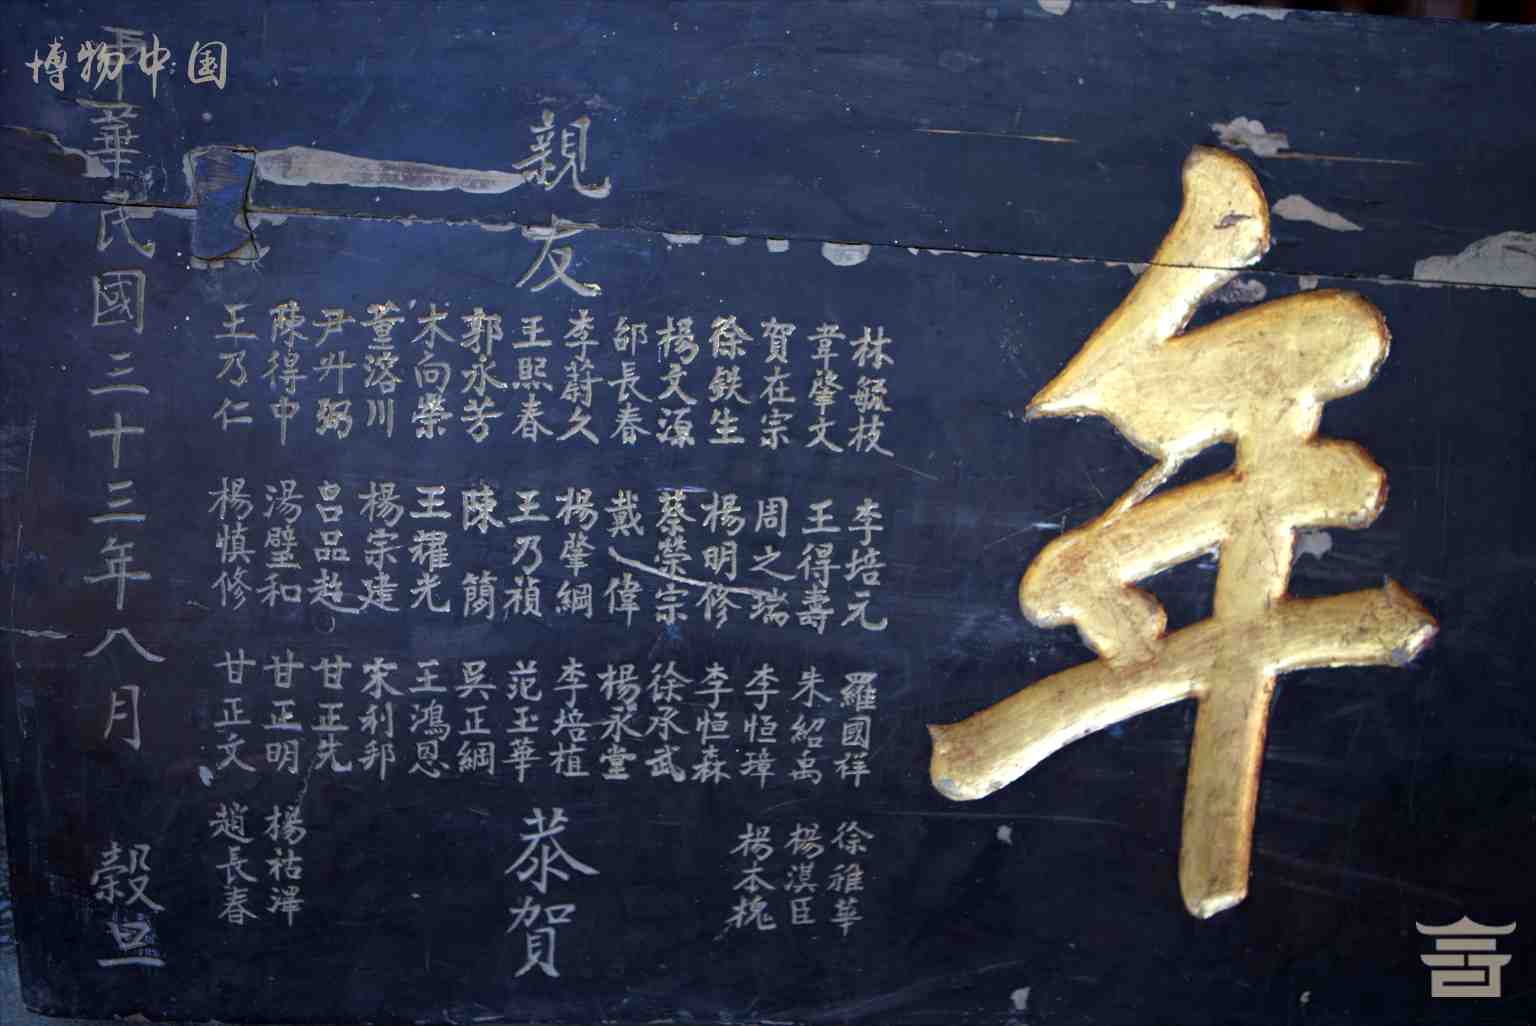 年
親友
林毓枝 李培元 羅國祥 徐雅華
韋肇文 王得壽 朱紹禹 楊淇臣
賀在宗 周之瑞 李恒璋 楊本槐
徐鉄生 楊明修 李恒森
楊文源 蔡榮宗 徐承武
邰長春 戴偉 楊永堂
李蔚久 楊肇綱 李培植
王熙春 王乃禎 范玉華
郭永芳 陳簡 吳正綱
宋向榮 王耀光 王鴻恩
董溶川 楊宗建 宋利邦
尹升弼 呂品超 甘正先
陳得中 湯璧和 甘正明 楊祜澤
王乃仁 楊慎修 甘正文 趙長春
恭賀
中華民國三十三年八月 穀旦
博物中国